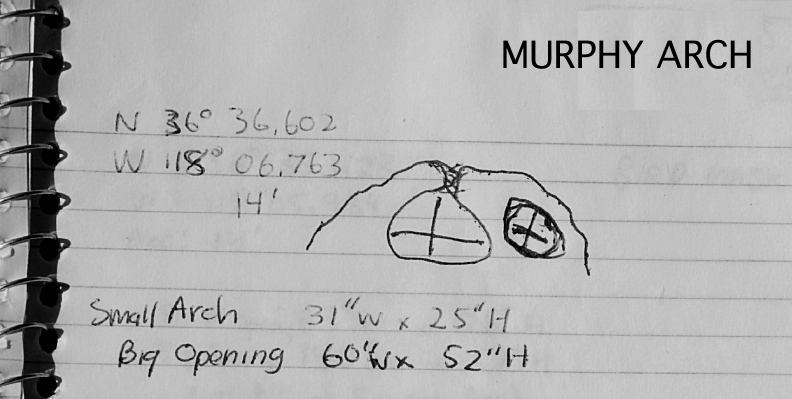 MURPHY ARCH
N 36° 36.602
W 118° 06.763
14'
Small Arch 31"W x 25"H
Big Opening 60"W x 52"H